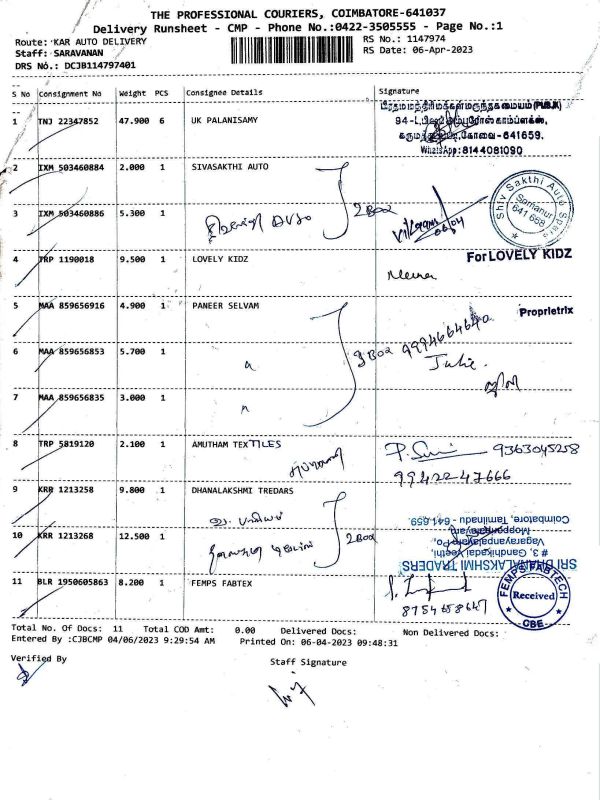 THE PROFESSIONAL COURIERS, COIMBATORE-641037
Delivery Runsheet - CMP - Phone No.:0422-3505555 - Page No.:1
Route: KAR AUTO DELIVERY RS No.: 1147974
Staff: SARAVANAN RS Date: 06-Apr-2023
DRS No.: DCJB114797401
S No Consignment No Weight PCS Consignee Details Signature
1 TNJ 22347852 47.900 6 UK PALANISAMY
94-L, கோவை-641659.
WhatsApp:8144081090
2 IXM 503460884 2.000 1 SIVASAKTHI AUTO
Shiv Sakthi Auto Spares
Samanur
641 668
3 IXM 503460886 5.300 1
2 Box
06/04
4 TRP 1190018 9.500 1 LOVELY KIDZ
For LOVELY KIDZ
Meena
Proprietrix
5 MAA 859656916 4.900 1 PANEER SELVAM
3 Box 9994664640
6 MAA 859656853 5.700 1
Julie.
7 MAA 859656835 3.000 1
8 TRP 5819120 2.100 1 AMUTHAM TEXTILES
9363045258
9942247666
9 KRR 1213258 9.800 1 DHANALAKSHMI TREDARS
2 Box
10 KRR 1213268 12.500 1
SRI DHANALAKSHMI TRADERS
# 3, Gandhikadai Veethi,
Vagarayampalayam Po,
Coimbatore, Tamilnadu - 641 659.
11 BLR 1950605863 8.200 1 FEMPS FABTEX
8754658647
FEMPS FABTECH
Received
CBE
Total No. Of Docs: 11 Total COD Amt: 0.00 Delivered Docs: Non Delivered Docs:
Entered By :CJBCMP 04/06/2023 9:29:54 AM Printed On: 06-04-2023 09:48:31
Verified By Staff Signature